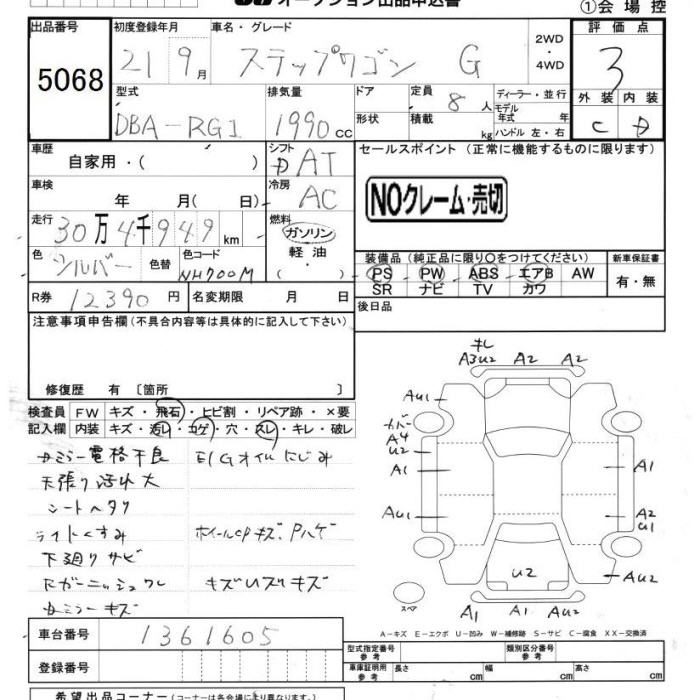 オークション出品申込書
①会場控
出品番号
5068
初度登録年月
21 9月
車名・グレード
ステップワゴン G
2WD
・
4WD
評価点
3
外装 内装
C D
型式
DBA-RG1
排気量
1990 cc
ドア
形状
定員 8 人
積載 kg
ディーラー・並行
モデル
年式 年
ハンドル 左・右
車歴
自家用・( )
シフト
AT
セールスポイント (正常に機能するものに限ります)
NOクレーム・売切
車検
年 月( 日)
冷房
AC
走行
30万4千949km
燃料
ガソリン
軽油
・
色
シルバー
色替
色コード
NH700M
装備品 (純正品に限り○をつけてください)
PS PW ABS エアB AW
SR ナビ TV カワ
新車保証書
有・無
R券 12390円
名変期限 月 日
後日品
注意事項申告欄 (不具合内容等は具体的に記入して下さい)
修復歴 有〔箇所 〕
検査員
記入欄
FW キズ・飛石・ヒビ割・リペア跡・×要
内装 キズ・汚レ・コゲ・穴・スレ・キレ・破レ
ミラー電格不良
E/Gオイルにじみ
天張り汚れ大
シートヘタリ
ライトくすみ
ホイールcpキズ、Pハゲ
下廻りサビ
Rガーニッシュワレ
キズUズリキズ
ミラーキズ
キレ
A3U2 A2 A2
AU1
カバー
A4
U2
A1 A1
AU1
A2
U1
U2
AU2
スペア
A1 A1 AU2
A-キズ E-エクボ U-凹み W-補修跡 S-サビ C-腐食 XX-交換済
車台番号
1361605
登録番号
型式指定番号
参考
類別区分番号
参考
車庫証明用
参考
長さ cm
幅 cm
高さ cm
希望出品コーナー(コーナーは各会場により異なります。)